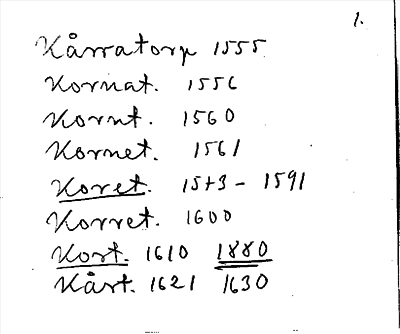 1.
Kårratorp 1555
Kornat. 1556
Kornt. 1560
Kornet. 1561
Koret. 1573 - 1591
Korret. 1600
Kort. 1610 1880
Kårt. 1621 1630